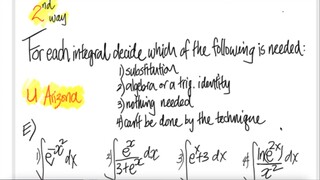 2nd
way
For each integral decide which of the following is needed:
1) substitution
2) algebra or a trig. identity
3) nothing needed
4) can't be done by the technique.
U Arizona
E)
1) ∫e^-x² dx 2) ∫ e^x/(3+e^x) dx 3) ∫e^x+3 dx 4) ∫ ln(e^2x)/x² dx